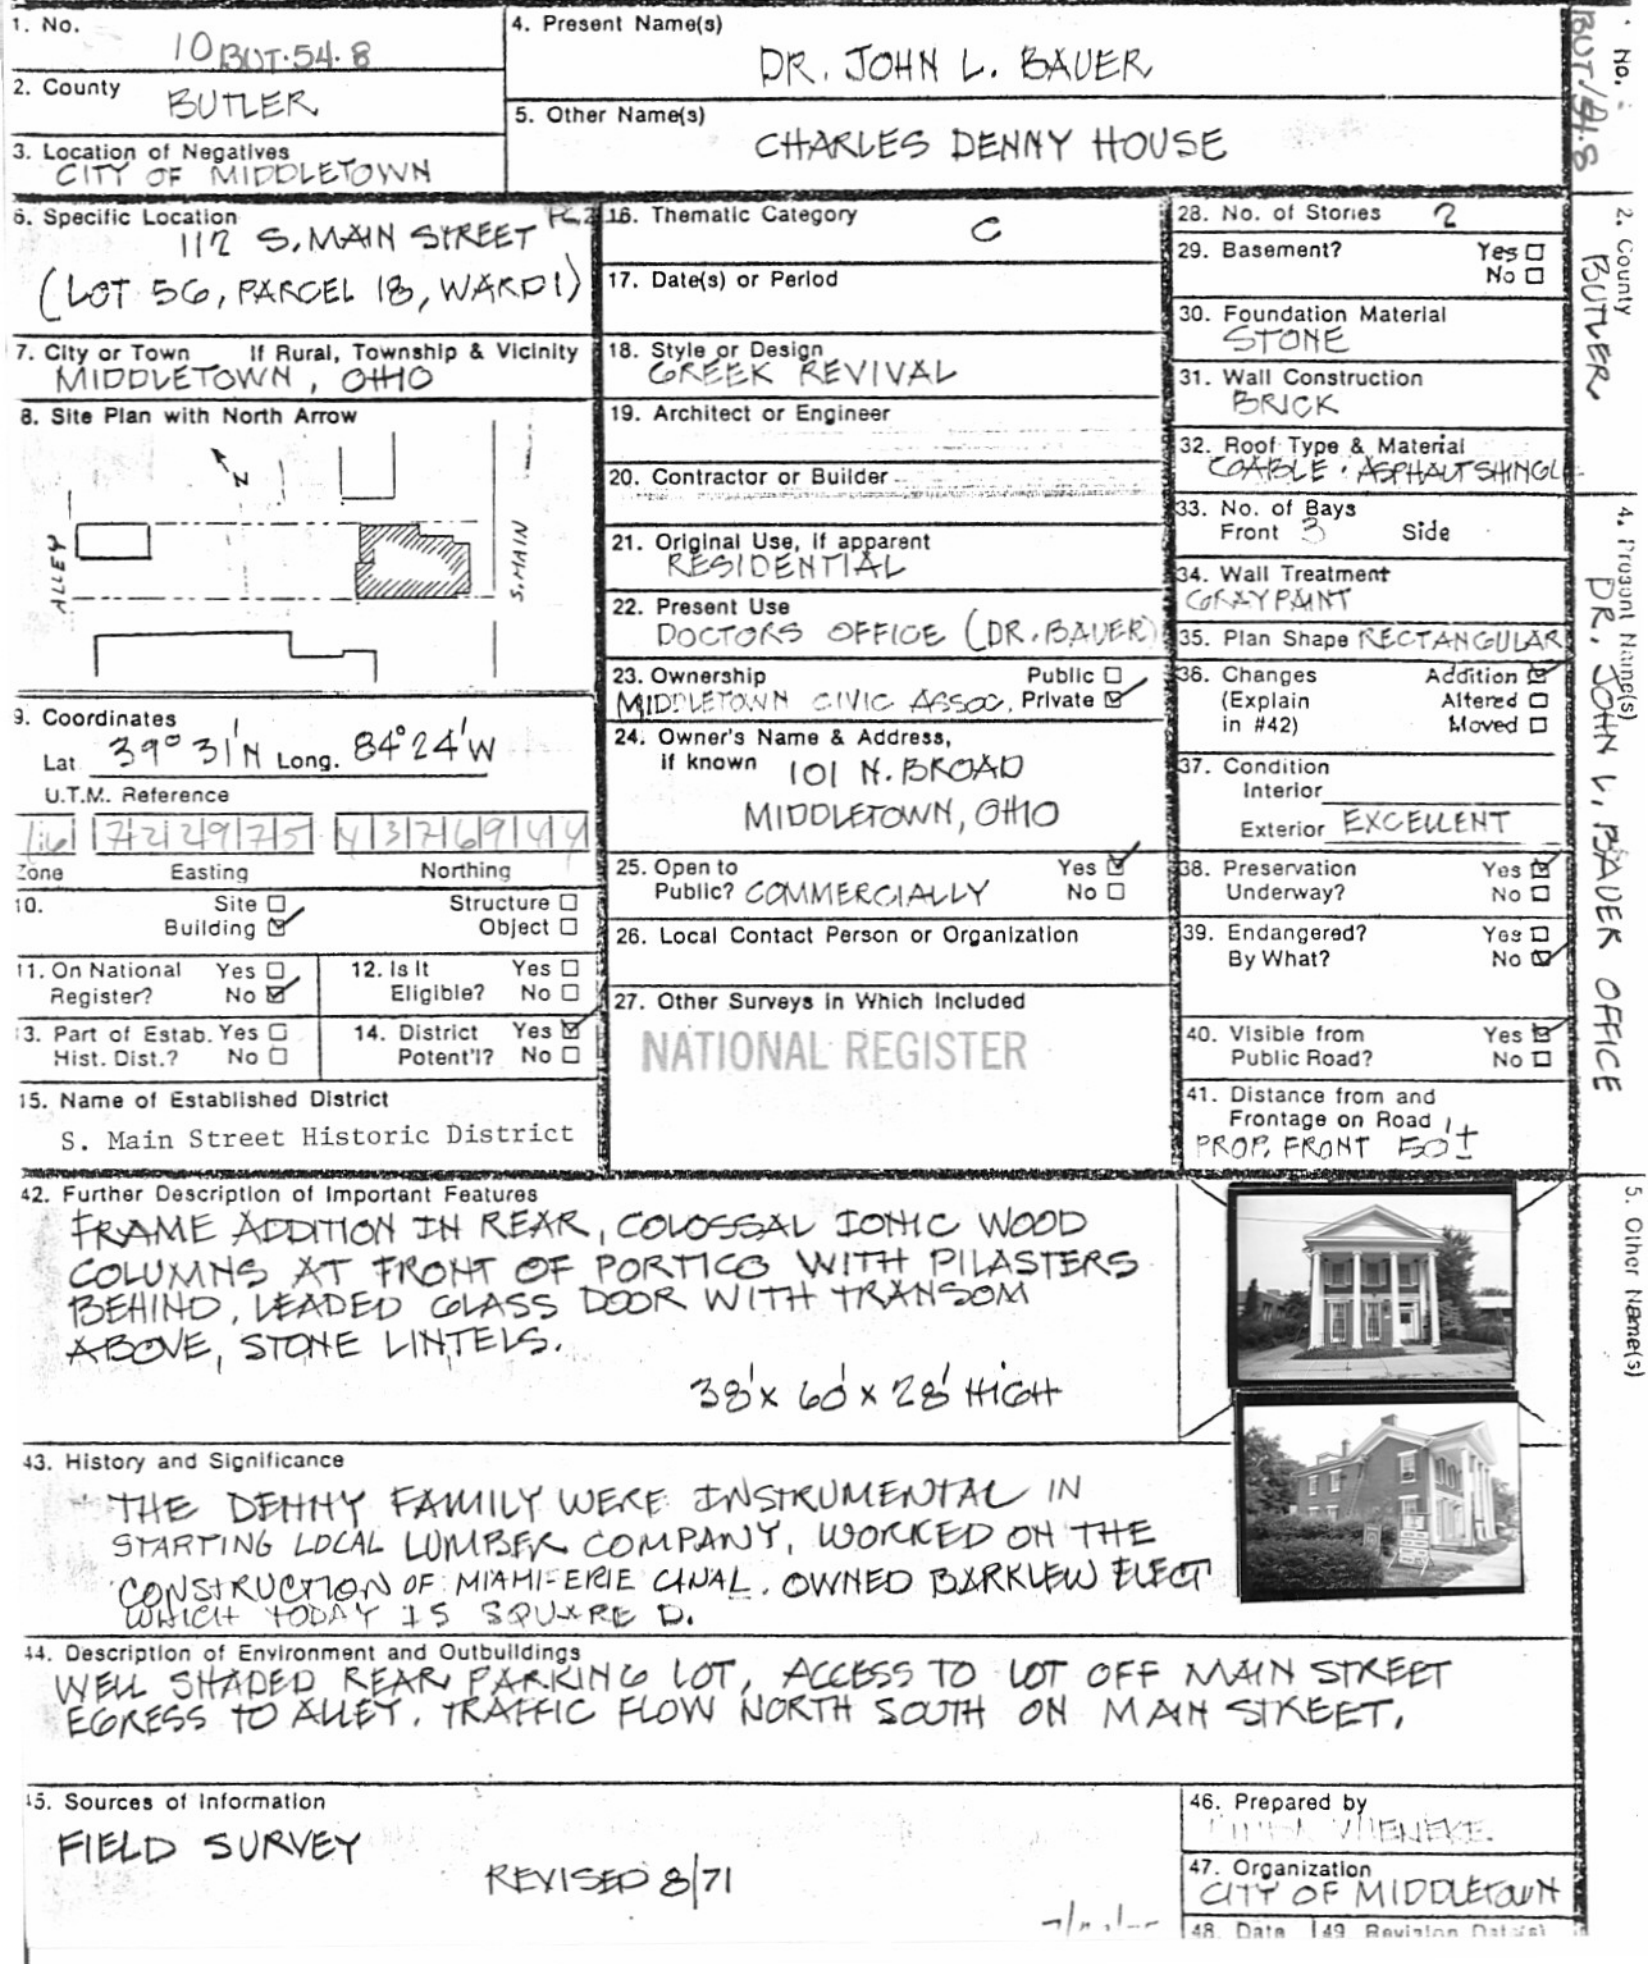 1. No.
10 BUT·54·8
2. County
BUTLER
3. Location of Negatives
CITY OF MIDDLETOWN
4. Present Name(s)
DR. JOHN L. BAUER
5. Other Name(s)
CHARLES DENNY HOUSE
6. Specific Location
112 S. MAIN STREET
(LOT 56, PARCEL 18, WARD 1)
7. City or Town If Rural, Township & Vicinity
MIDDLETOWN, OHIO
8. Site Plan with North Arrow
N
ALLEY
S. MAIN
9. Coordinates
Lat 39° 31' N Long. 84° 24' W
U.T.M. Reference
16 722975 4376944
Zone Easting Northing
10. Site Structure
Building Object
11. On National Yes
Register? No
12. Is It Yes
Eligible? No
13. Part of Estab. Yes
Hist. Dist.? No
14. District Yes
Potent'l? No
15. Name of Established District
S. Main Street Historic District
16. Thematic Category
C
17. Date(s) or Period
18. Style or Design
GREEK REVIVAL
19. Architect or Engineer
20. Contractor or Builder
21. Original Use, if apparent
RESIDENTIAL
22. Present Use
DOCTORS OFFICE (DR. BAUER)
23. Ownership Public
MIDDLETOWN CIVIC ASSOC. Private
24. Owner's Name & Address,
if known 101 N. BROAD
MIDDLETOWN, OHIO
25. Open to Yes
Public? COMMERCIALLY No
26. Local Contact Person or Organization
27. Other Surveys in Which Included
NATIONAL REGISTER
28. No. of Stories 2
29. Basement? Yes
No
30. Foundation Material
STONE
31. Wall Construction
BRICK
32. Roof Type & Material
GABLE · ASPHALT SHINGL
33. No. of Bays
Front 3 Side
34. Wall Treatment
GRAY PAINT
35. Plan Shape RECTANGULAR
36. Changes Addition
(Explain Altered
in #42) Moved
37. Condition
Interior
Exterior EXCELLENT
38. Preservation Yes
Underway? No
39. Endangered? Yes
By What? No
40. Visible from Yes
Public Road? No
41. Distance from and
Frontage on Road
PROP. FRONT 50'±
42. Further Description of Important Features
FRAME ADDITION IN REAR, COLOSSAL IONIC WOOD
COLUMNS AT FRONT OF PORTICO WITH PILASTERS
BEHIND, LEADED GLASS DOOR WITH TRANSOM
ABOVE, STONE LINTELS.
38' x 60' x 28' HIGH
43. History and Significance
THE DENNY FAMILY WERE INSTRUMENTAL IN
STARTING LOCAL LUMBER COMPANY, WORKED ON THE
CONSTRUCTION OF MIAMI-ERIE CANAL. OWNED BARKLEW ELECT
WHICH TODAY IS SQUARE D.
44. Description of Environment and Outbuildings
WELL SHADED REAR PARKING LOT, ACCESS TO LOT OFF MAIN STREET
EGRESS TO ALLEY. TRAFFIC FLOW NORTH SOUTH ON MAIN STREET.
45. Sources of Information
FIELD SURVEY
REVISED 8/71
46. Prepared by
47. Organization
CITY OF MIDDLETOWN
48. Date 49. Revision Date(s)
No.
BUT·54·8
2. County
BUTLER
4. Present Name(s)
DR. JOHN L. BAUER OFFICE
5. Other Name(s)